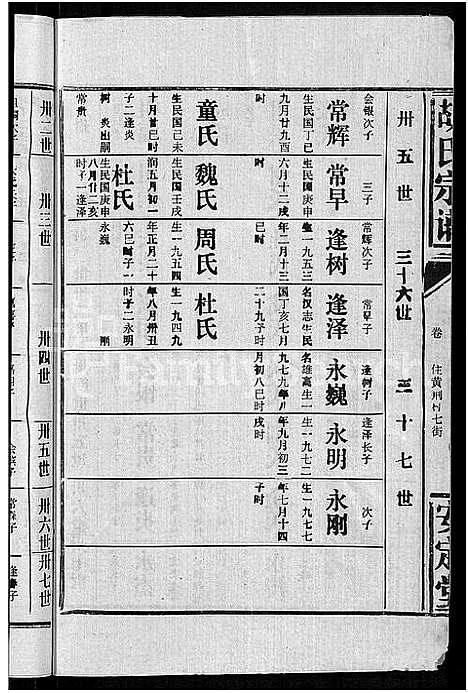 胡氏宗谱
卷
住黄荆村七街
安定堂
卅五世
三十六世
三十七世
会银次子
常辉
生民国丁巳
九月廿九酉
时
童氏
生民国己未
十月廿巳时
子二逢炎
树 炎出嗣
常贵
三子
常早
生民国庚申
六月十二戌
时
魏氏
生民国壬戌
润五月初一
杜氏
生民国庚申
八月廿二亥
时子一逢泽
常辉次子
逢树
生一九五三
年二月十三
周氏
生一九五四
年正月二十
六巳时子一
永巍
常早子
逢泽
名汉志生民
国丁亥七月
二十九子时
杜氏
生一九四九
年八月卅丑
时子二永明
刚
逢树子
永巍
名雄高生一
九七九年八
月初八巳时
逢泽长子
永明
生一九七二
年九月初三
戌时
次子
永刚
生一九七七
年七月十四
子时
卅二世
卅三世
卅四世
卅五世
卅六世
卅七世